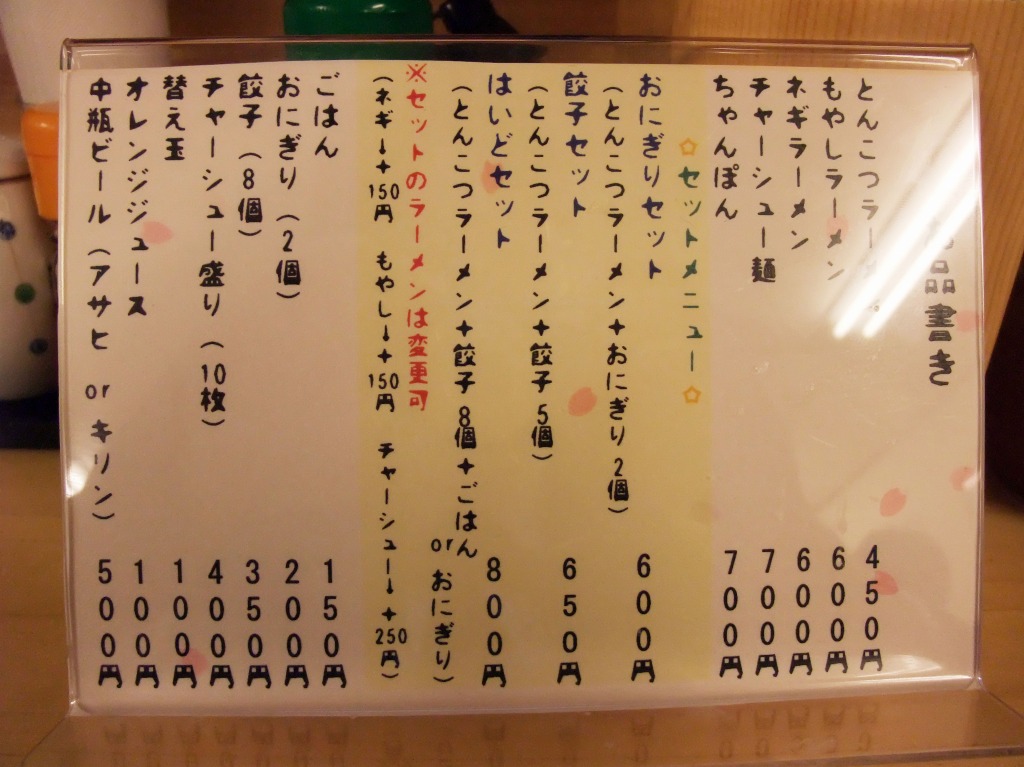 品書き
とんこつラーメン 450円
もやしラーメン 600円
ネギラーメン 600円
チャーシュー麺 700円
ちゃんぽん 700円
✩セットメニュー✩
おにぎりセット 600円
(とんこつラーメン+おにぎり2個)
餃子セット 650円
(とんこつラーメン+餃子5個)
はいどセット 800円
(とんこつラーメン+餃子8個+ごはん or おにぎり)
※セットのラーメンは変更可
(ネギ→+150円 もやし→+150円 チャーシュー→+250円)
ごはん 150円
おにぎり(2個) 200円
餃子(8個) 350円
チャーシュー盛り(10枚) 400円
替え玉 100円
オレンジジュース 100円
中瓶ビール(アサヒ or キリン) 500円